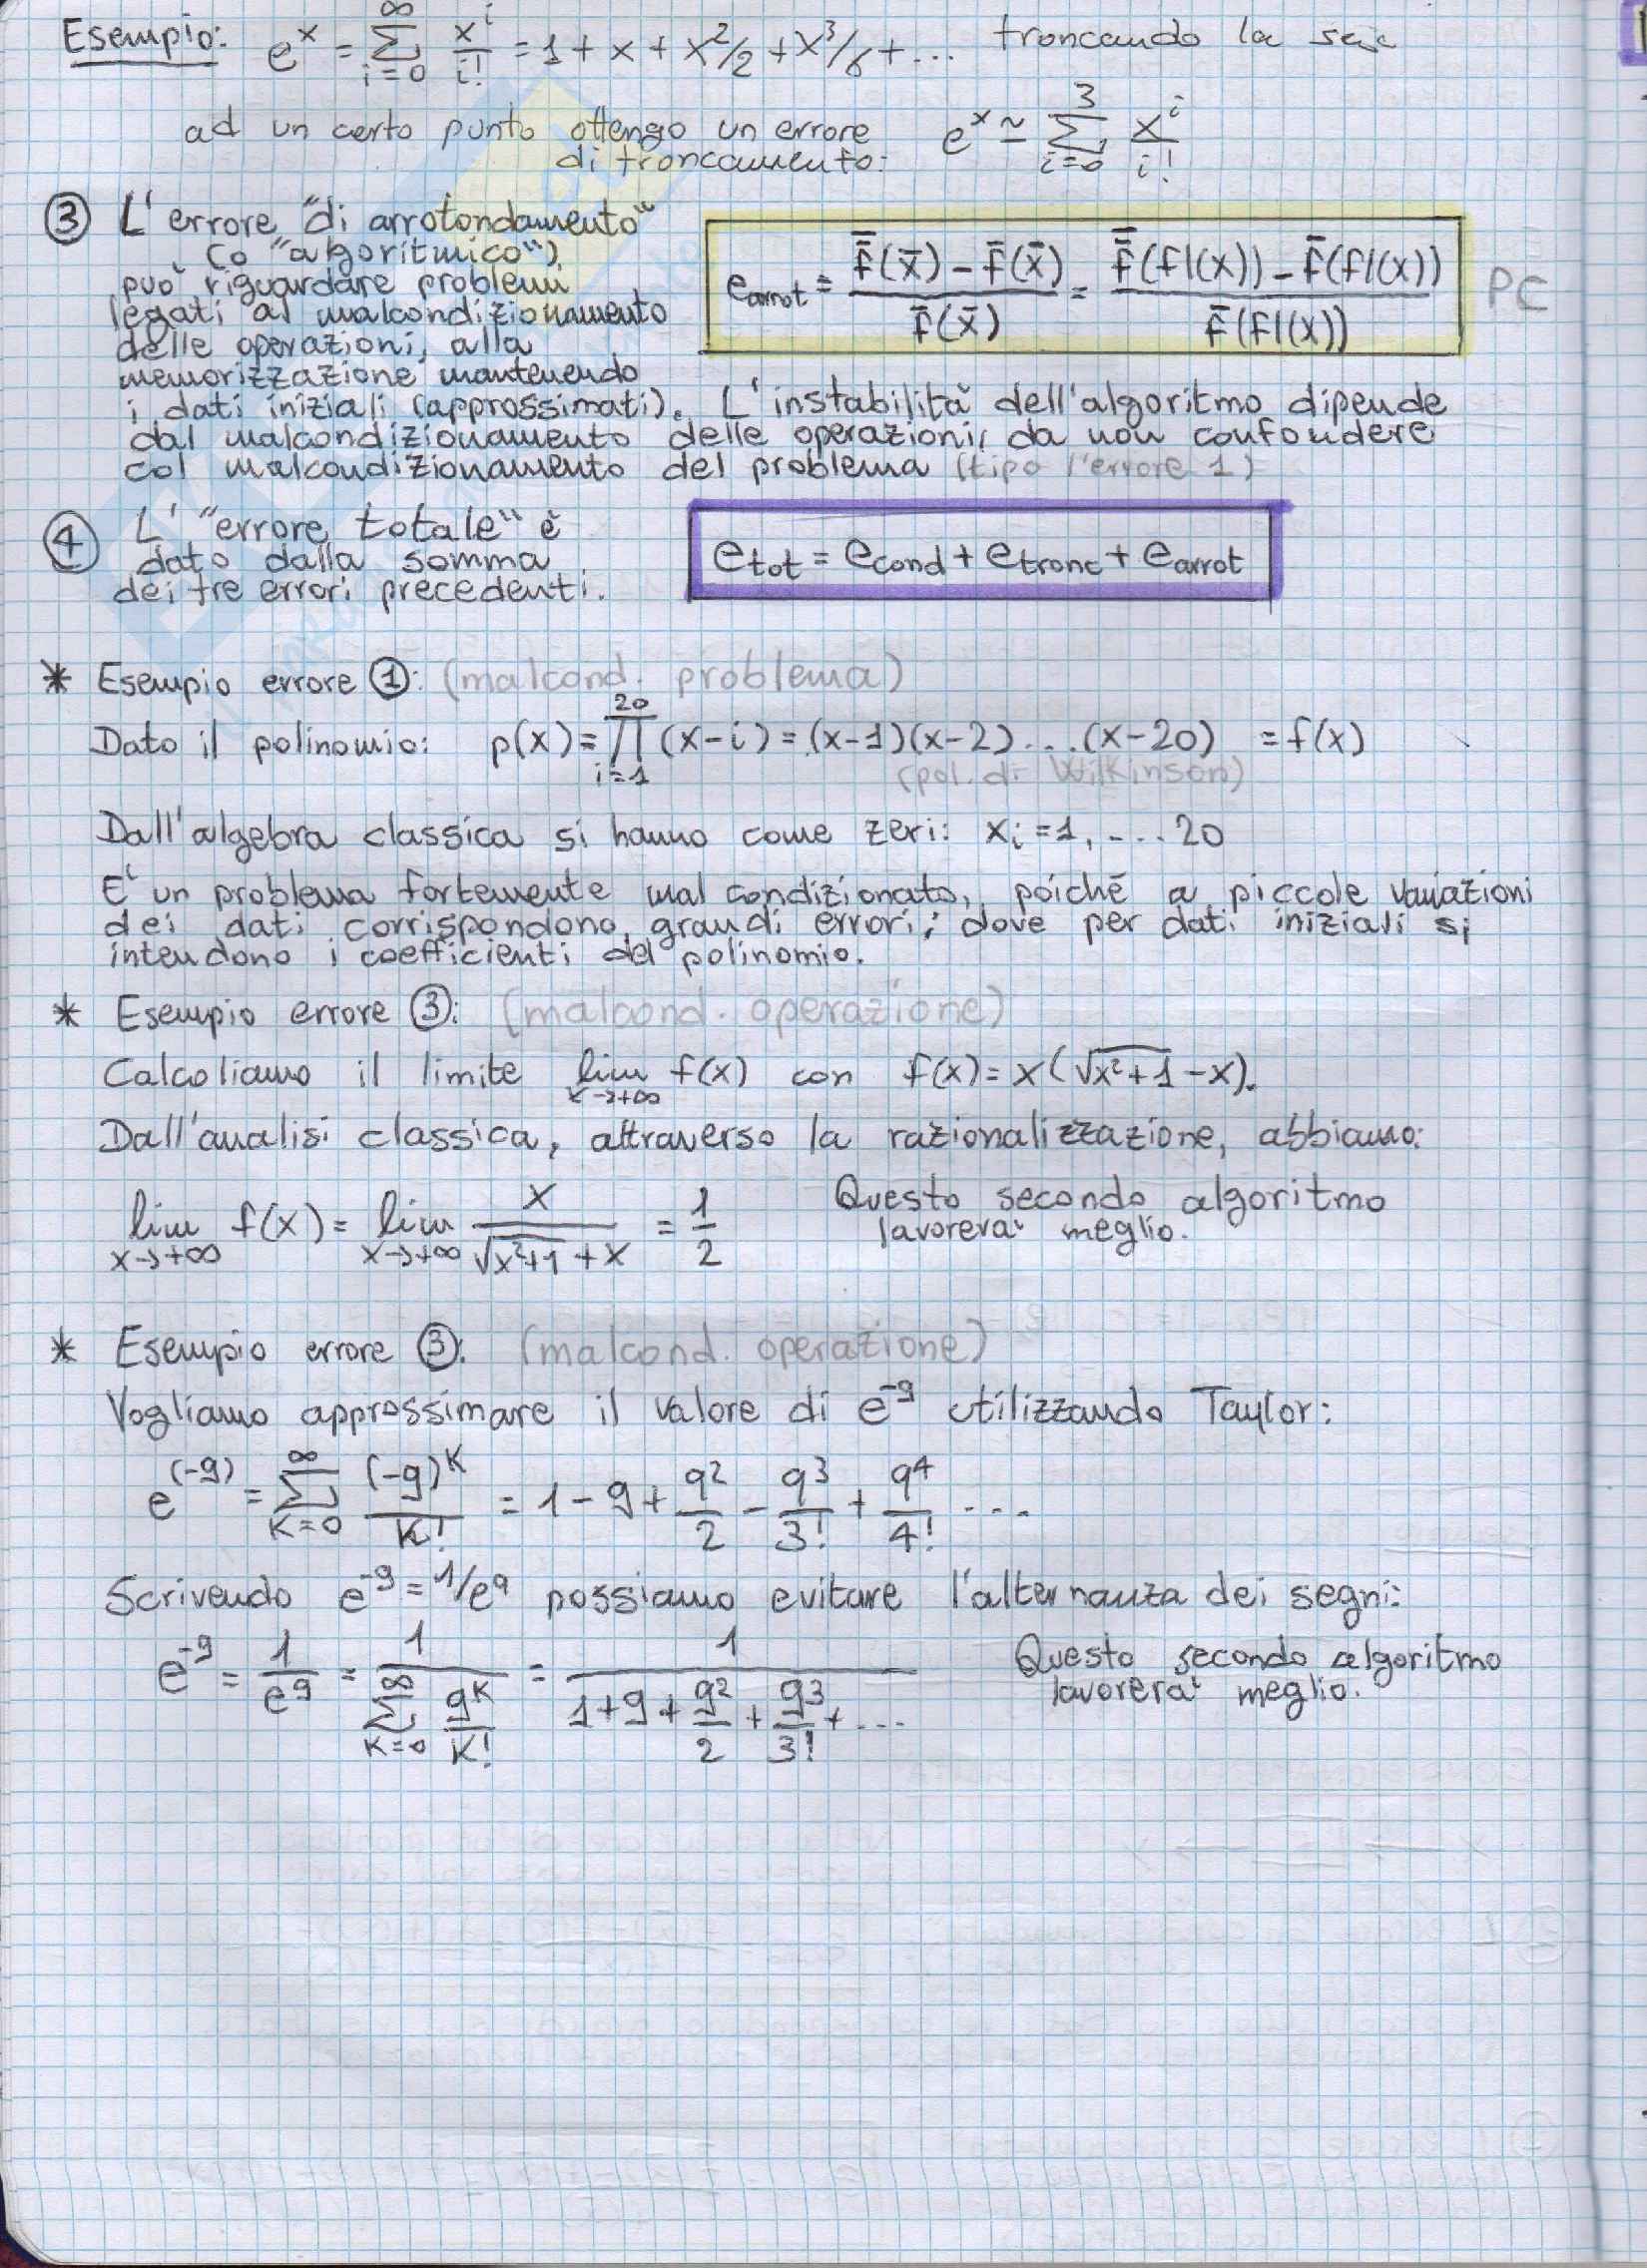 Esempio: e^x = ∑_{i=0}^{∞} x^i/i! = 1 + x + x²/2 + x³/6 + ... troncando la serie
ad un certo punto ottengo un errore
di troncamento: e^x ≃ ∑_{i=0}^{3} x^i/i!
③ L'errore "di arrotondamento"
(o "algoritmico")
può riguardare problemi
legati al malcondizionamento
delle operazioni, alla
memorizzazione mantenendo
e_arrot = (f̿(x̄) - f̄(x̄))/f̄(x̄) = (f̿(fl(x)) - f̄(fl(x)))/f̄(fl(x)) PC
i dati iniziali (approssimati). L'instabilità dell'algoritmo dipende
dal malcondizionamento delle operazioni, da non confondere
col malcondizionamento del problema (tipo l'errore 1)
④ L' "errore totale" è
dato dalla somma
dei tre errori precedenti.
e_tot = e_cond + e_tronc + e_arrot
* Esempio errore ①: (malcond. problema)
Dato il polinomio: p(x) = ∏_{i=1}^{20} (x-i) = (x-1)(x-2)....(x-20) = f(x)
(pol. di Wilkinson)
Dall'algebra classica si hanno come zeri: x_i = 1, ... 20
E' un problema fortemente mal condizionato, poiché a piccole variazioni
dei dati corrispondono grandi errori; dove per dati iniziali si
intendono i coefficienti del polinomio.
* Esempio errore ③: (malcond. operazione)
Calcoliamo il limite lim_{x→+∞} f(x) con f(x) = x(√(x²+1) - x).
Dall'analisi classica, attraverso la razionalizzazione, abbiamo:
lim_{x→+∞} f(x) = lim_{x→+∞} x/(√(x²+1) + x) = 1/2 Questo secondo algoritmo
lavorerà meglio.
* Esempio errore ③: (malcond. operazione)
Vogliamo approssimare il valore di e^-9 utilizzando Taylor:
e^(-9) = ∑_{K=0}^{∞} (-9)^K/K! = 1 - 9 + 9²/2 - 9³/3! + 9⁴/4! ...
Scrivendo e^-9 = 1/e^9 possiamo evitare l'alternanza dei segni:
e^-9 = 1/e^9 = 1/(∑_{K=0}^{∞} 9^K/K!) = 1/(1 + 9 + 9²/2 + 9³/3! + ...) Questo secondo algoritmo
lavorerà meglio.